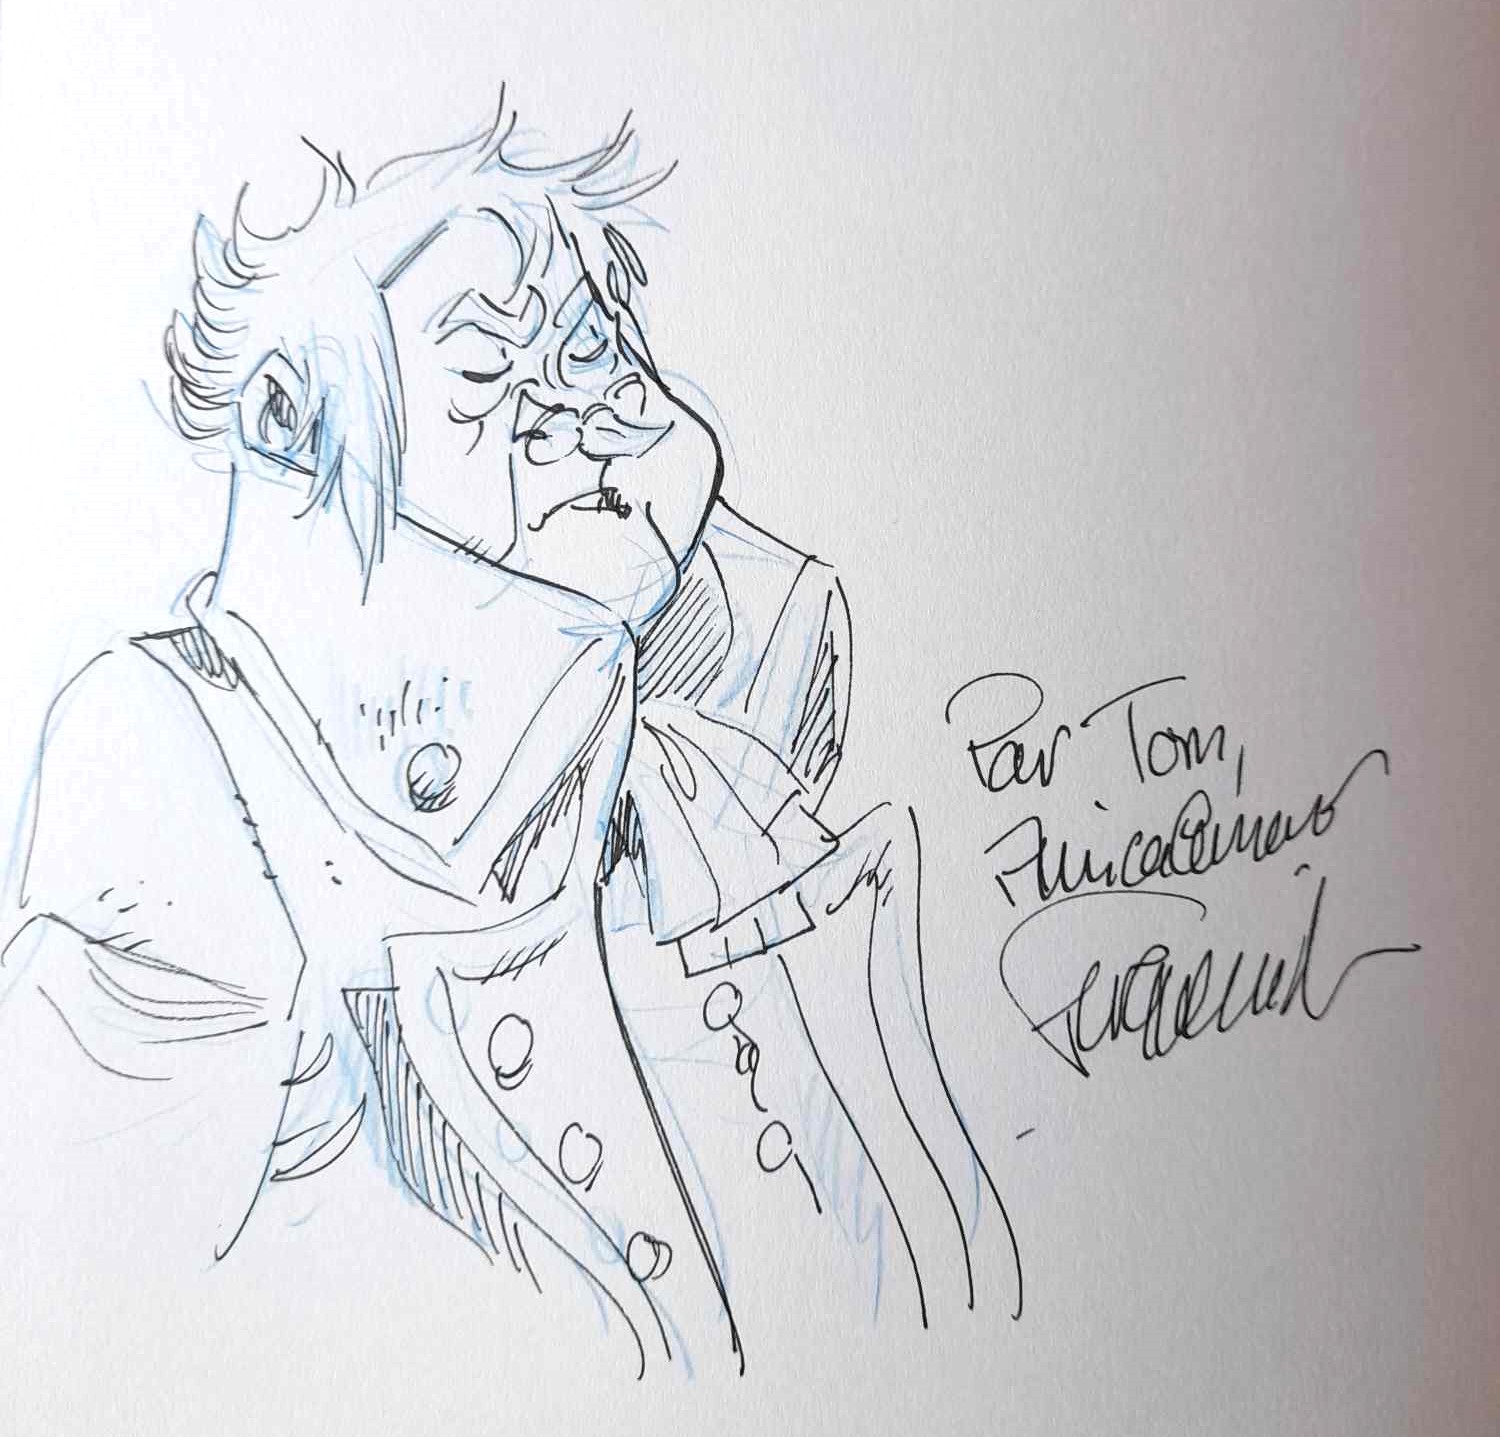 Pour Tom,
Amicalement